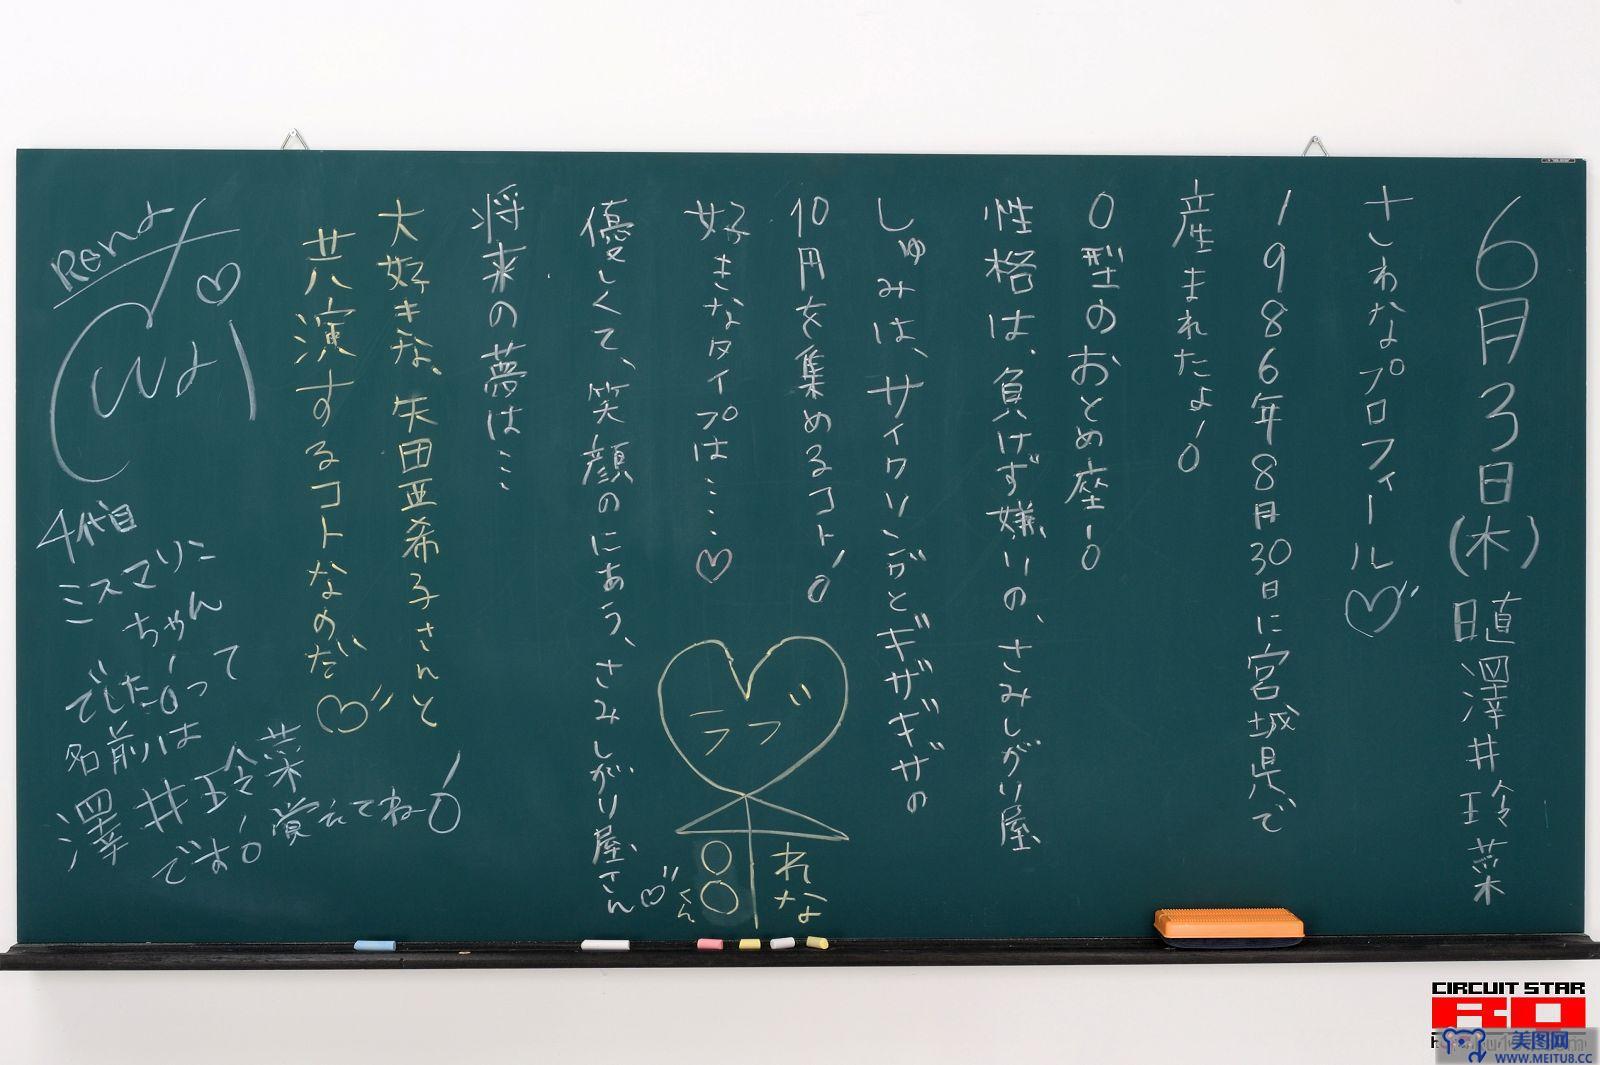 6月3日(木) 日直 澤井玲菜
さわなよプロフィール♡
1986年8月30日に宮城県で
産まれたよ!
O型のおとめ座!
性格は、負けず嫌いの、さみしがり屋
しゅみは、サイクリングとギザギザの
10円を集めるコト!
好きなタイプは……♡
優しくて、笑顔のにあう、さみしがり屋さん♡
ラブラブ
れなよ
○○くん
将来の夢は…
大好きな、矢田亜希子さんと
共演するコトなのだ♡
Renよ
♡
4代目
ミスマリンちゃん
でしたよ!って
名前は
澤井玲菜
です!覚えてねー!
CIRCUIT STAR
RQ
美图网
WWW.MEITU8.CC